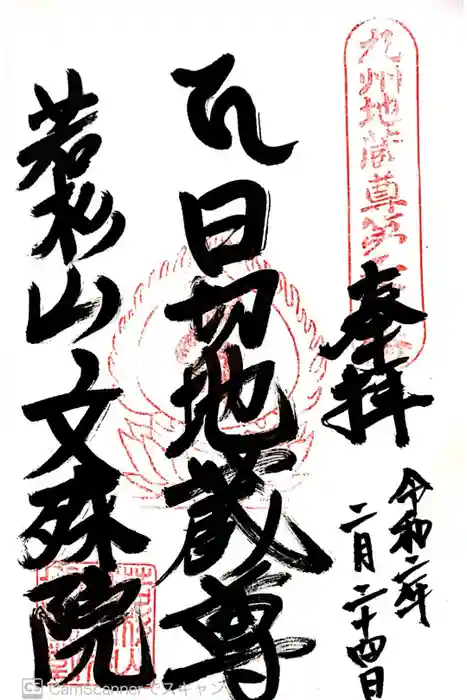 九州地蔵尊第
奉拝
令和二年
二月二十四日
日切地蔵尊
若杉山文殊院
CamScannerでスキャン